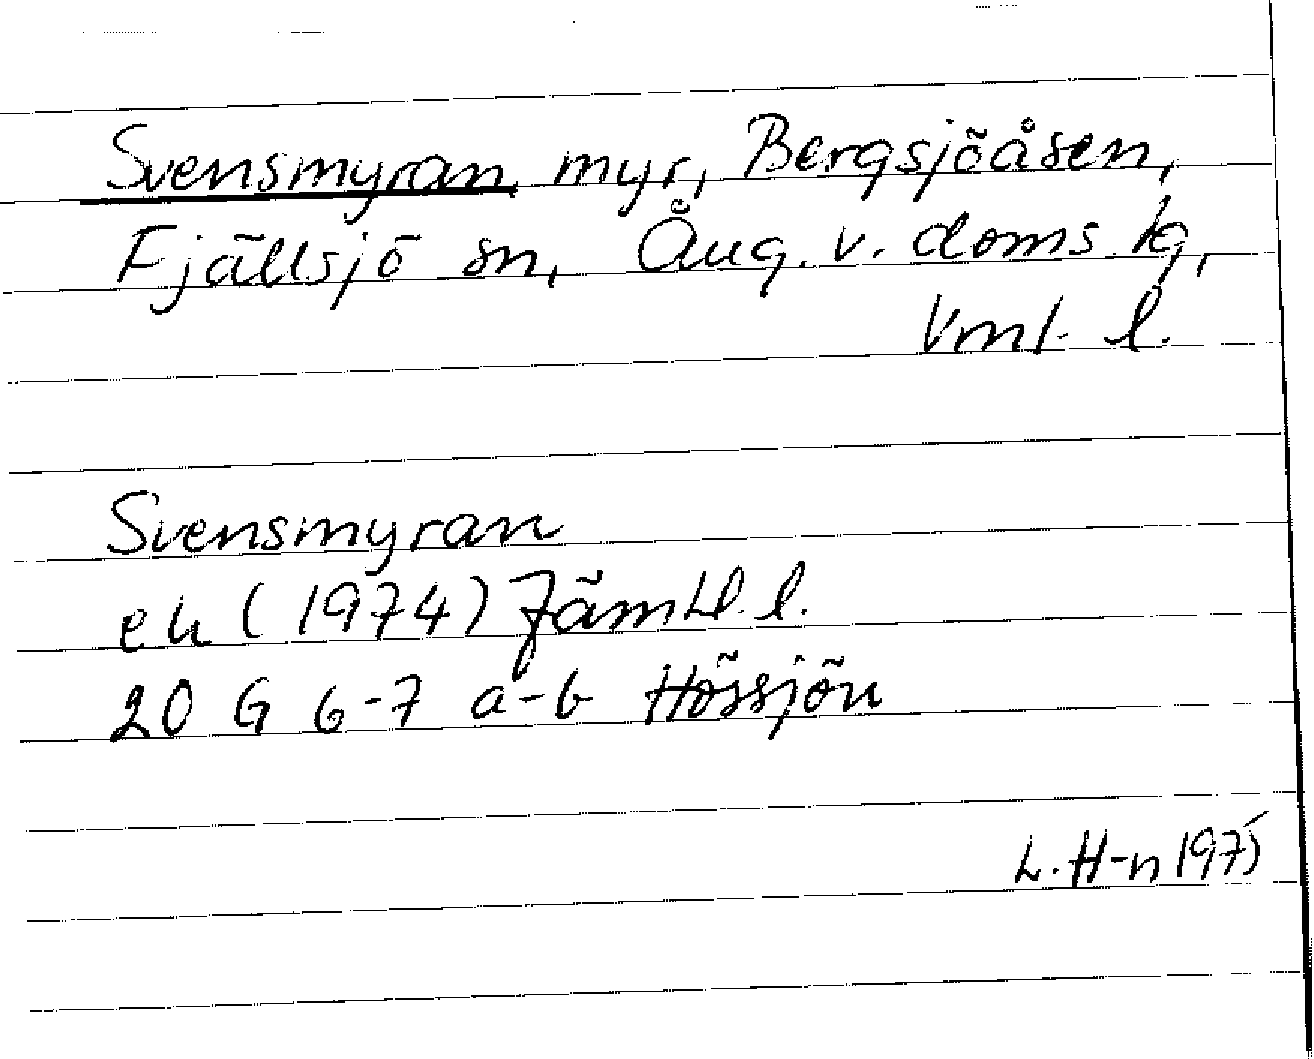 Svensmyran, myr, Bergsjöåsen,
Fjällsjö sn, Ång. v. doms. lg,
Vnrl. l.
Svensmyran
ek (1974) Jämtl. l.
20 G 6-7 a-b Hössjön
L. H-n 1975